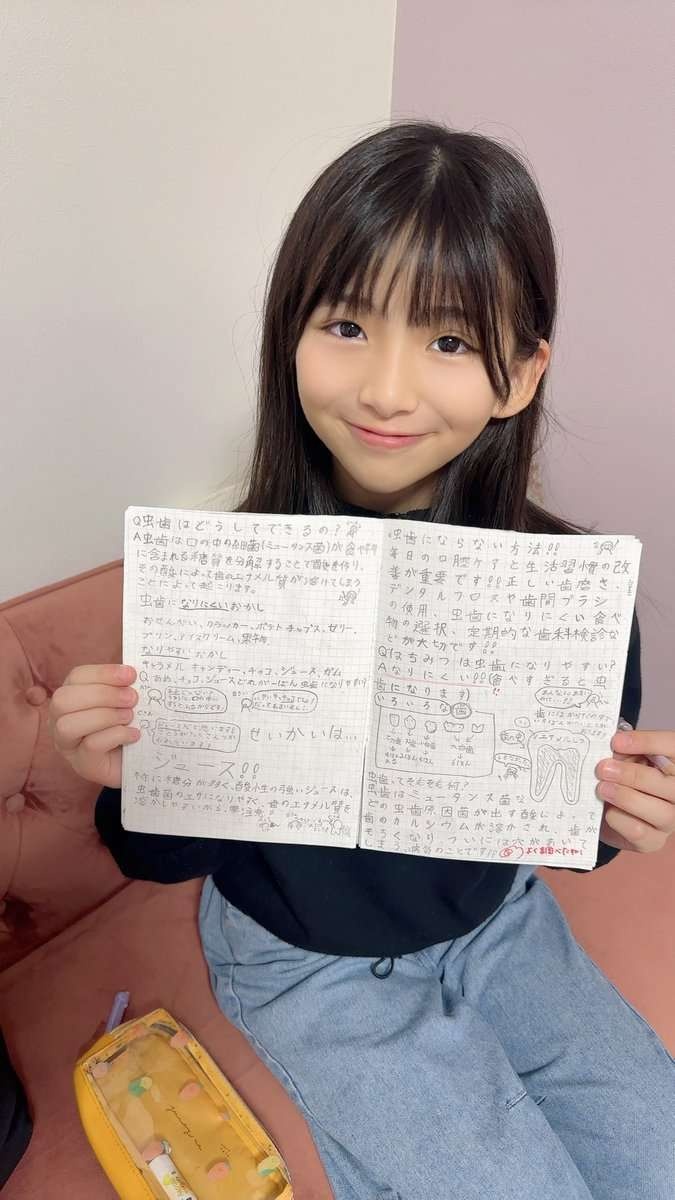 Q虫歯はどうしてできるの?
A虫歯は口の中の細菌(ミュータンス菌)が食べ物
に含まれる糖質を分解することで酸を作り、
その酸によって歯のエナメル質が溶けてしまう
ことによって起こります。
虫歯になりにくいおかし
おせんべい、クラッカー、ポテトチップス、ゼリー、
プリン、アイスクリーム、果物
なりやすいおかし
キャラメル、キャンディー、チョコ、ジュース、ガム
Qあめ、チョコ、ジュースどれが一ばん虫歯になりやすい?
せいかいは…
ジュース!!
特に糖分が多く、酸性の強いジュースは、
虫歯菌のエサになりやすく、歯のエナメル質を
溶かしやすいから要注意。
虫歯にならない方法!!
毎日の口腔ケアと生活習慣の改
善が重要です!!正しい歯磨き、
デンタルフロスや歯間ブラシ
の使用、虫歯になりにくい食べ
物の選択、定期的な歯科検診な
どが大切です!!
Qはちみつは虫歯になりやすい?
Aなりにくい!!(食べすぎると虫
歯になります)
いろいろな歯
エナメルしつ
虫歯ってそもそも何?
虫歯はミュータンス菌な
どの虫歯原因菌が出す酸によって
歯のカルシウムが溶かされ、歯が
もろくなりついには穴があいて
しまう病気のことです!!